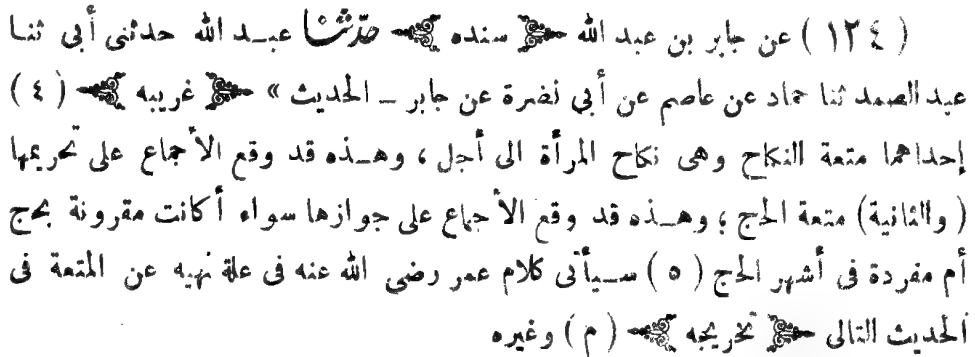 ( ١٢٤ ) عن جابر بن عبد الله ﴿ سنده ﴾ حدّثنا عبـد الله حدثنى أبى ثنـا
عبد الصمد ثنا حماد عن عاصم عن أبي نضرة عن جابر ــ الحديث » ﴿ غريبه ﴾ ( ٤ )
إحداهما متعة النكاح وهى نكاح المرأة الى أجل ، وهـذه قد وقع الأجماع على تحريمها
( والثانية) متعة الحج ؛ وهـذه قد وقع الأجماع على جوازها سواء أكانت مقرونة بحج
أم مفردة فى أشهر الحج ( ٥ ) سـيأتى كلام عمر رضى الله عنه فى علة نهيه عن المتعة فى
الحديث التالى ﴿ تخريجه ﴾ ( م ) وغيره